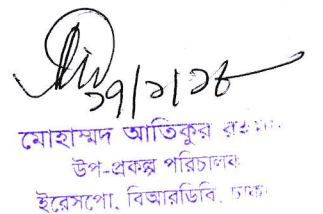 ২৭/১/২৮
মোহাম্মদ আতিকুর রহমান
উপ-প্রকল্প পরিচালক
ইরেসপো, বিআরডিবি, ঢাকা